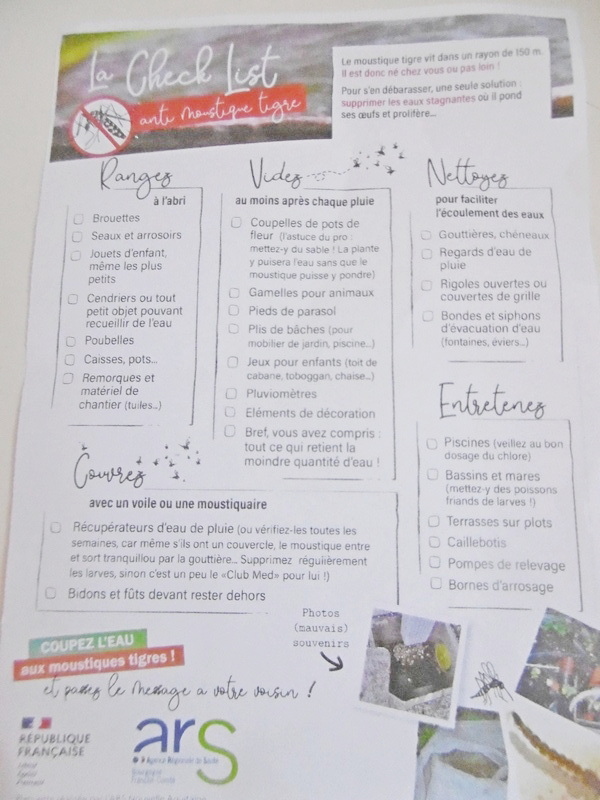 La Check List
anti moustique tigre
Le moustique tigre vit dans un rayon de 150 m.
Il est donc né chez vous ou pas loin !
Pour s'en débarasser, une seule solution :
supprimer les eaux stagnantes où il pond
ses œufs et prolifère...
Rangez
à l'abri
Brouettes
Seaux et arrosoirs
Jouets d'enfant,
même les plus
petits
Cendriers ou tout
petit objet pouvant
recueillir de l'eau
Poubelles
Caisses, pots...
Remorques et
matériel de
chantier (tuiles...)
Videz
au moins après chaque pluie
Coupelles de pots de
fleur (l'astuce du pro :
mettez-y du sable ! La plante
y puisera l'eau sans que le
moustique puisse y pondre)
Gamelles pour animaux
Pieds de parasol
Plis de bâches (pour
mobilier de jardin, piscine...)
Jeux pour enfants (toit de
cabane, toboggan, chaise...)
Pluviomètres
Eléments de décoration
Bref, vous avez compris :
tout ce qui retient la
moindre quantité d'eau !
Nettoyez
pour faciliter
l'écoulement des eaux
Gouttières, chéneaux
Regards d'eau de
pluie
Rigoles ouvertes ou
couvertes de grille
Bondes et siphons
d'évacuation d'eau
(fontaines, éviers...)
Entretenez
Piscines (veillez au bon
dosage du chlore)
Bassins et mares
(mettez-y des poissons
friands de larves !)
Terrasses sur plots
Caillebotis
Pompes de relevage
Bornes d'arrosage
Couvrez
avec un voile ou une moustiquaire
Récupérateurs d'eau de pluie (ou vérifiez-les toutes les
semaines, car même s'ils ont un couvercle, le moustique entre
et sort tranquillou par la gouttière... Supprimez régulièrement
les larves, sinon c'est un peu le «Club Med» pour lui !)
Bidons et fûts devant rester dehors
Photos
(mauvais)
souvenirs
COUPEZ L'EAU
aux moustiques tigres !
et passez le message a votre voisin !
RÉPUBLIQUE
FRANÇAISE
Liberté
Égalité
Fraternité
ars
Agence Régionale de Santé
Bourgogne
Franche-Comté